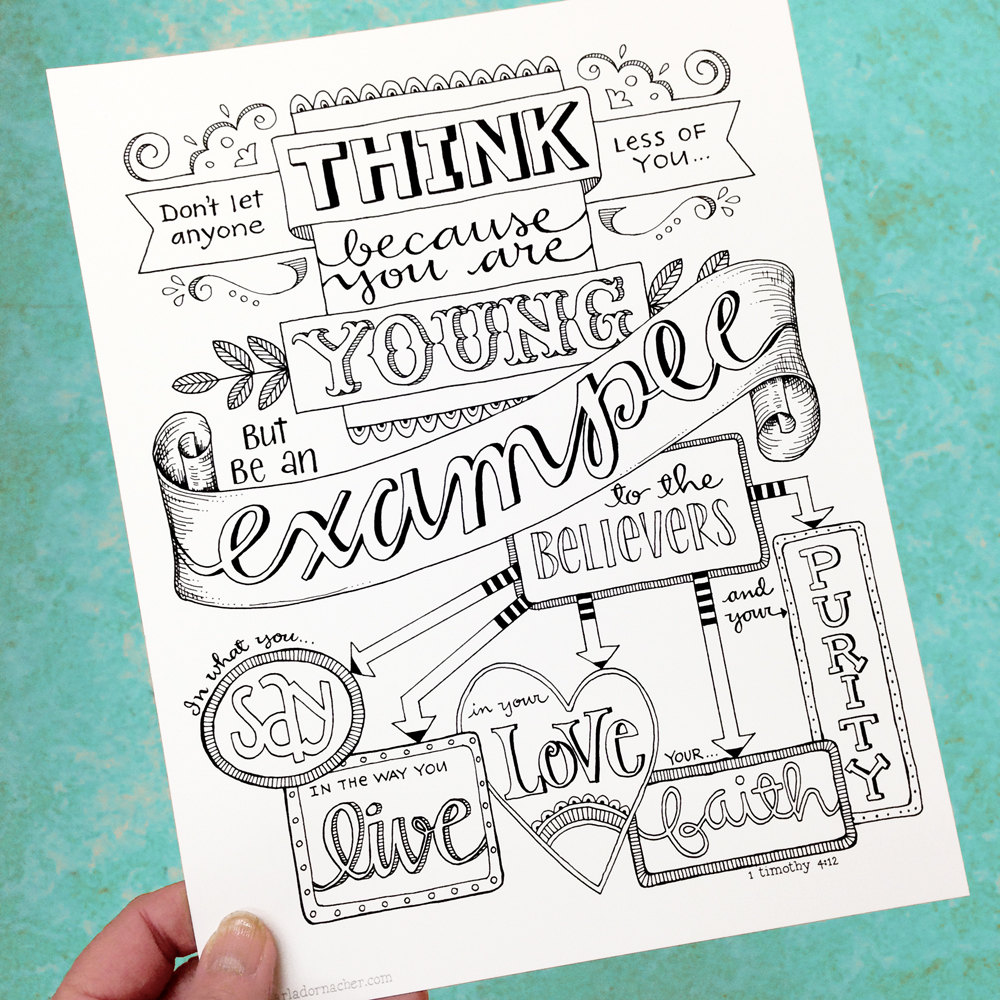 Don't let
anyone
THINK
LESS OF
YOU...
because
you are
YOUNG
BUT
BE AN
example
to the
BELIEVERS
In what you...
SAY
IN THE WAY YOU
live
in your
LOVE
YOUR...
faith
and
your
PURITY
1 timothy 4:12